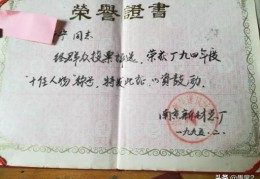 荣誉證書
同志
经群众投票推选，荣获厂九四年度
"十佳人物"称号，特发此证，以资鼓励。
南京
一九九五.二.